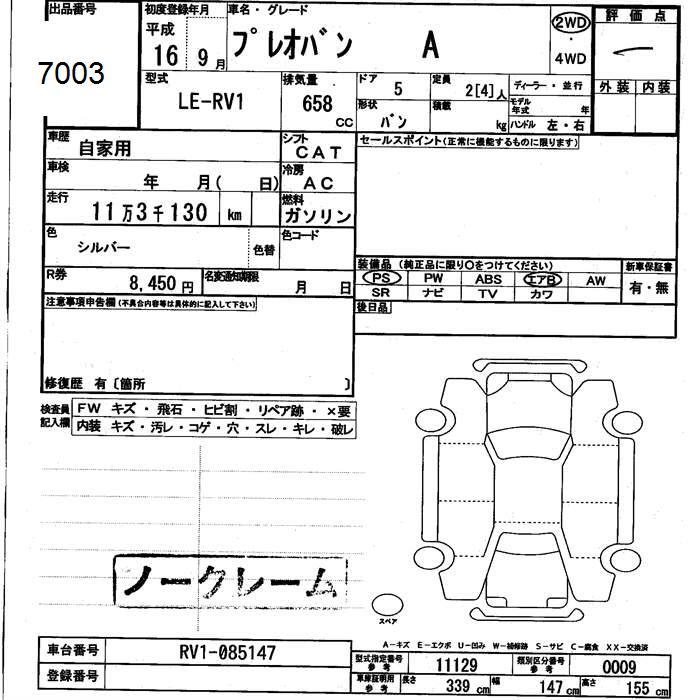 出品番号
7003
初度登録年月
平成
16 9月
車名・グレード
プレオバン A
2WD
・
4WD
評価点
外装 内装
型式
LE-RV1
排気量
658 CC
ドア
5
定員
2[4]人
ディーラー・並行
形状
バン
積載
kg
モデル年式 年
ハンドル 左・右
車歴
自家用
シフト
CAT
車検
年 月( 日)
冷房
AC
走行
11万3千130 km
燃料
ガソリン
色
シルバー
色替
色コード
R券
8,450円
名変通知期限
月 日
セールスポイント(正常に機能するものに限ります)
装備品 (純正品に限り○をつけてください)
PS PW ABS エアB AW
SR ナビ TV カワ
新車保証書
有・無
後日品
注意事項申告欄(不具合内容等は具体的に記入して下さい)
修復歴 有〔箇所 〕
検査員記入欄
FW キズ・飛石・ヒビ割・リペア跡・×要
内装 キズ・汚レ・コゲ・穴・スレ・キレ・破レ
ノークレーム
スペア
A-キズ E-エクボ U-凹み W-補修跡 S-サビ C-腐食 XX-交換済
車台番号 RV1-085147
登録番号
型式指定番号参考 11129 類別区分番号参考 0009
車庫証明用参考 長さ 339cm 幅 147cm 高さ 155cm